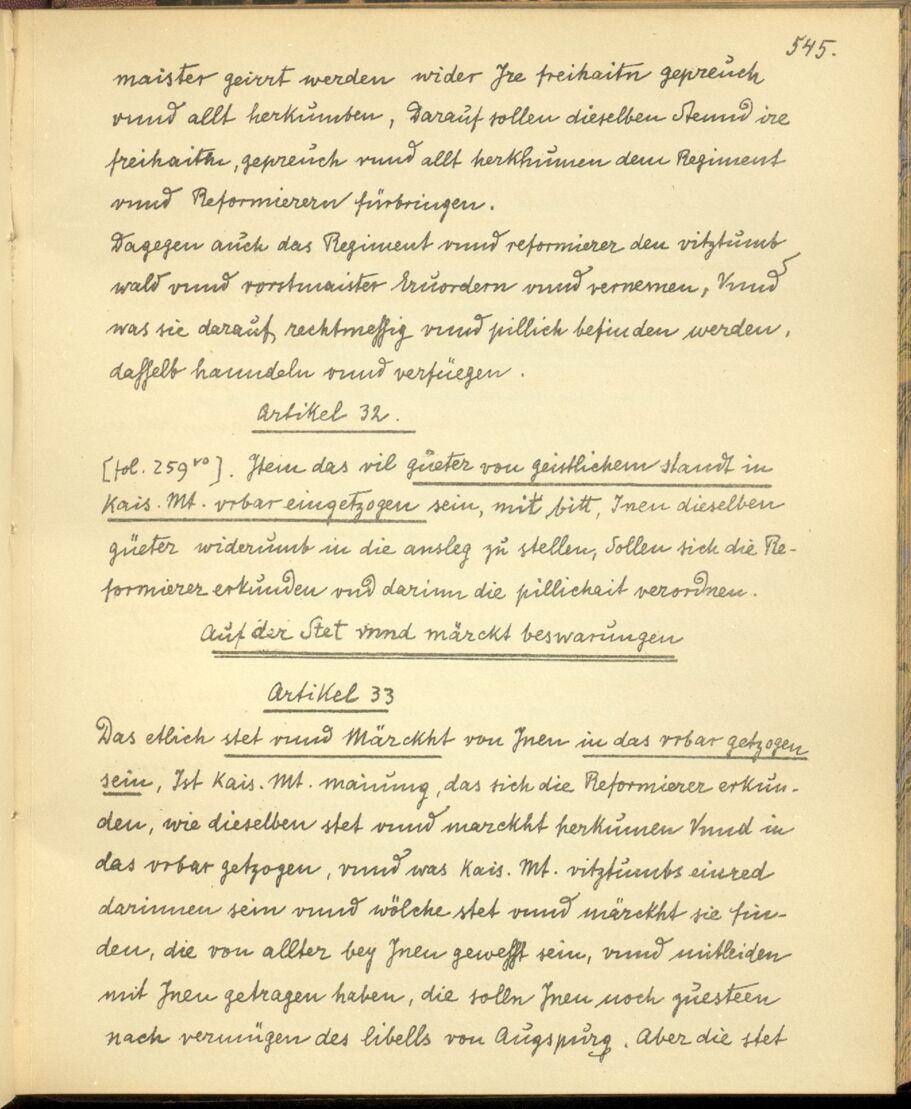 545.
maister geirrt werden wider Jre freihaitn gepreuch
vnnd allt herkumben, Darauf sollen dieselben Stennd ire
freihaitn, gepreuch vnnd allt herkhumen dem Regiment
vnnd Reformierern fürbringen.
Dagegen auch das Regiment vnnd reformierer den vitztumb
wald vnnd vorstmaister Eruordern vnnd vernemen, Vnnd
was sie darauf rechtmessig vnnd pillich befinden werden,
dasselb hanndeln vnnd verfüegen.
Artikel 32.
[fol. 259 vo]. Jtem das vil güeter von geistlichem standt in
Kais. Mt. vrbar eingetzogen sein, mit bitt, Jnen dieselben
güeter widerumb in die ansleg zu stellen, Sollen sich die Re-
formierer erkunden vnd darinn die pillichait verordnen.
Auf der Stet vnnd märckt beswarungen
Artikel 33
Das etlich stet vnnd Märckht von Jnen in das vrbar getzogen
sein, Ist Kais. Mt. mainung, das sich die Reformierer erkun-
den, wie dieselben stet vnnd marckht herkumen Vnnd in
das vrbar getzogen, vnnd was Kais. Mt. vitztumbs einred
darinnen sein vnnd wölche stet vnnd märckht sie fin-
den, die von allter bey Jnen gewesst sein, vnnd mitleiden
mit Jnen getragen haben, die solln Jnen noch zuesteen
nach vermügen des libells von Augspurg. Aber die stet